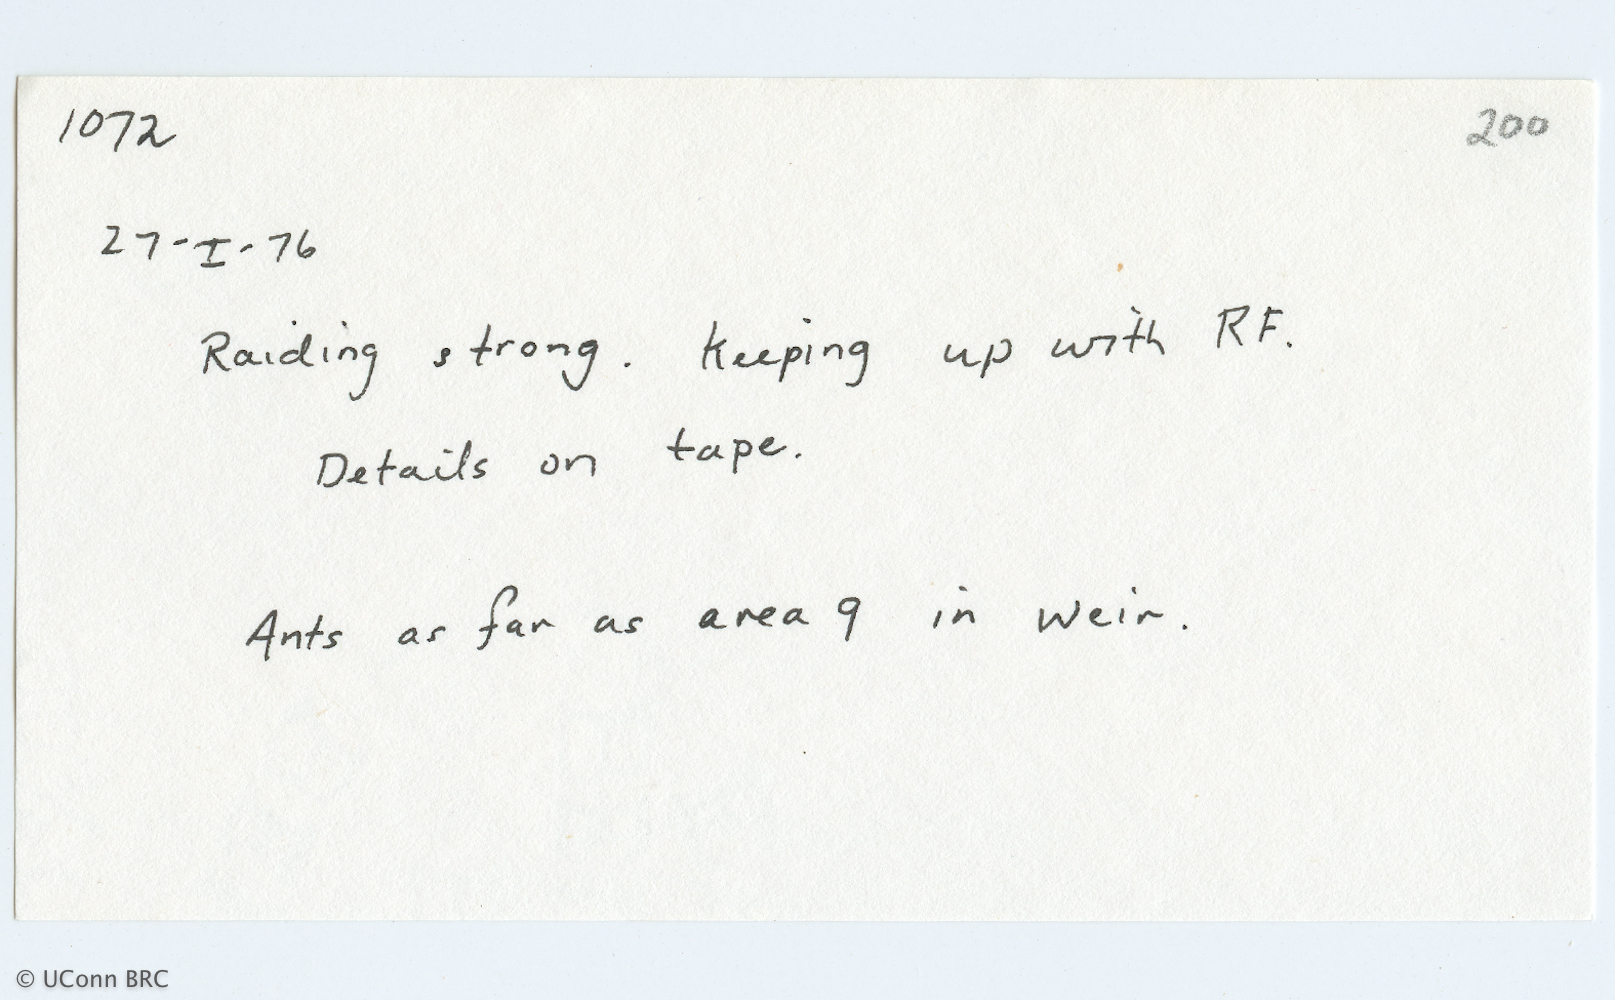 1072
200
27-I-76
Raiding strong. Keeping up with RF.
Details on tape.
Ants as far as area 9 in weir.
© UConn BRC